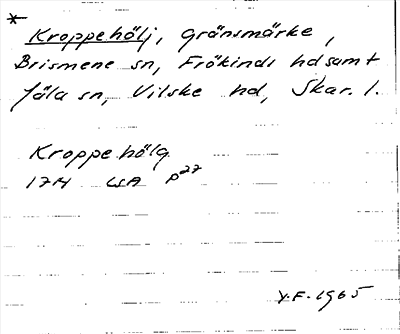 * Kroppehölj, gränsmärke,
Brismene sn, Frökinds hd samt
Jäla sn, Vilske hd, Skar. l.
Kroppe hölg
1714 LSA P27
Y.F. 1965